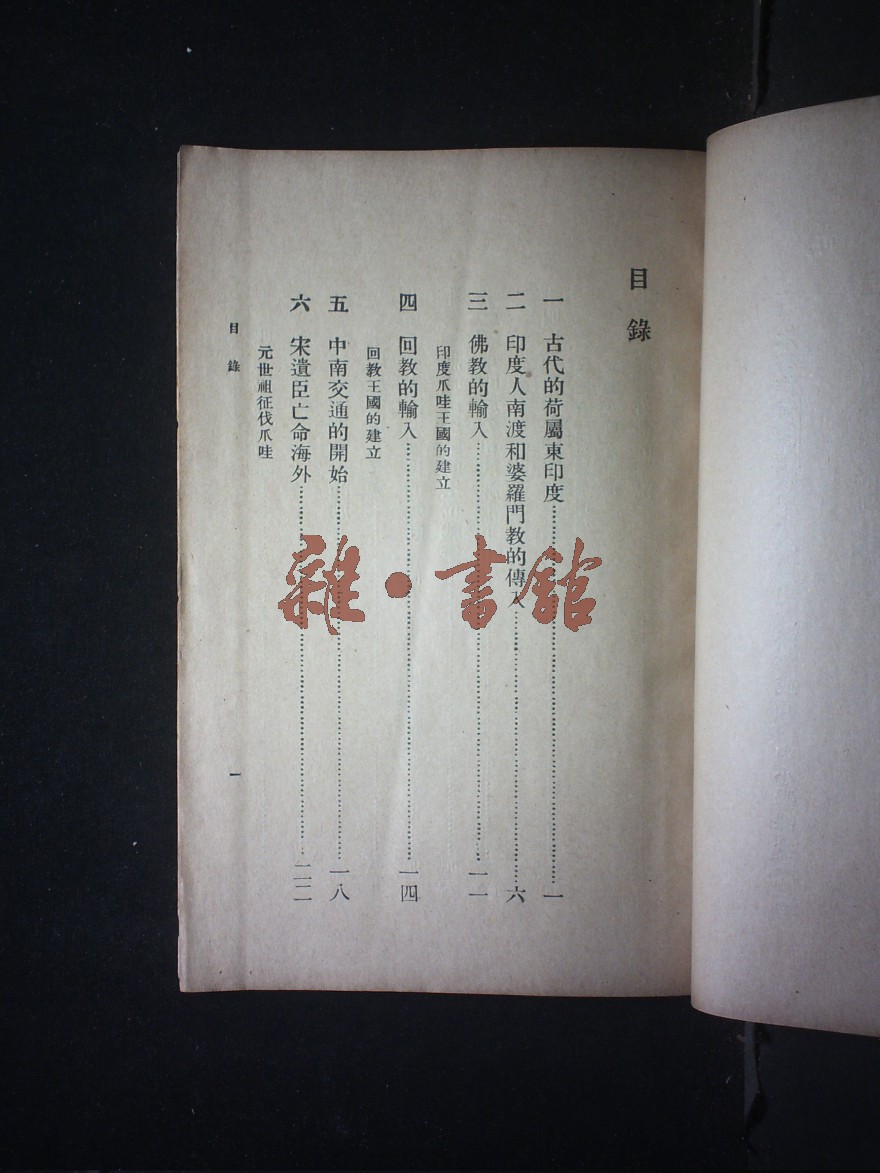 目錄
一 古代的荷屬東印度……一
二 印度人南渡和婆羅門教的傳入……六
三 佛教的輸入……一一
印度爪哇王國的建立
四 回教的輸入……一四
回教王國的建立
五 中南交通的開始……一八
六 宋遺臣亡命海外……二二
元世祖征伐爪哇
目錄
一
雜·書館